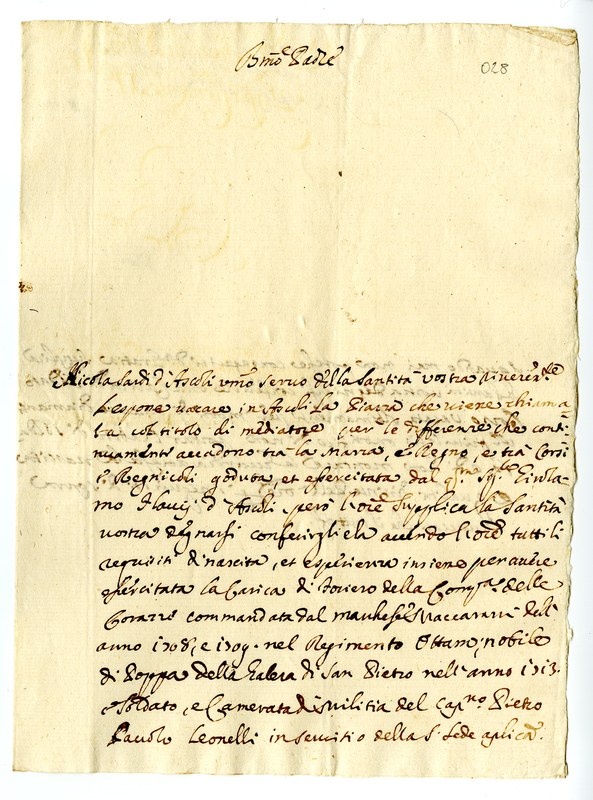 Bmo Padre
028
Nicola Sardi d'Ascoli umo servo della Santità vostra riveren.te
l'espone vacare in Ascoli la Piazza che viene chiama
ta col titolo di mediatore per le differenze che conti
nuamente accadono trà la Marca, e Regno, e trà Corsi
e Regnicoli goduta, et essercitata dal qm Sig.re Girola
mo d'Ascoli però l'Ore supplica la Santità
vostra degnarsi conferirgliela avendo l'Ore tutti li
requisiti di nascita, et esperienza insieme per avere
esercitata la Carica di foriero della Compa. delle
Corazze commandata dal marchese Vaccaria dell'
anno 1708, e 1709. nel Regimento nobile
di Poppa della Galera di San Pietro nell'anno 1713.
Soldato, e Camerata di Militia del Capno. Pietro
Pauolo Leonelli in servitio della S. Sede aplica.